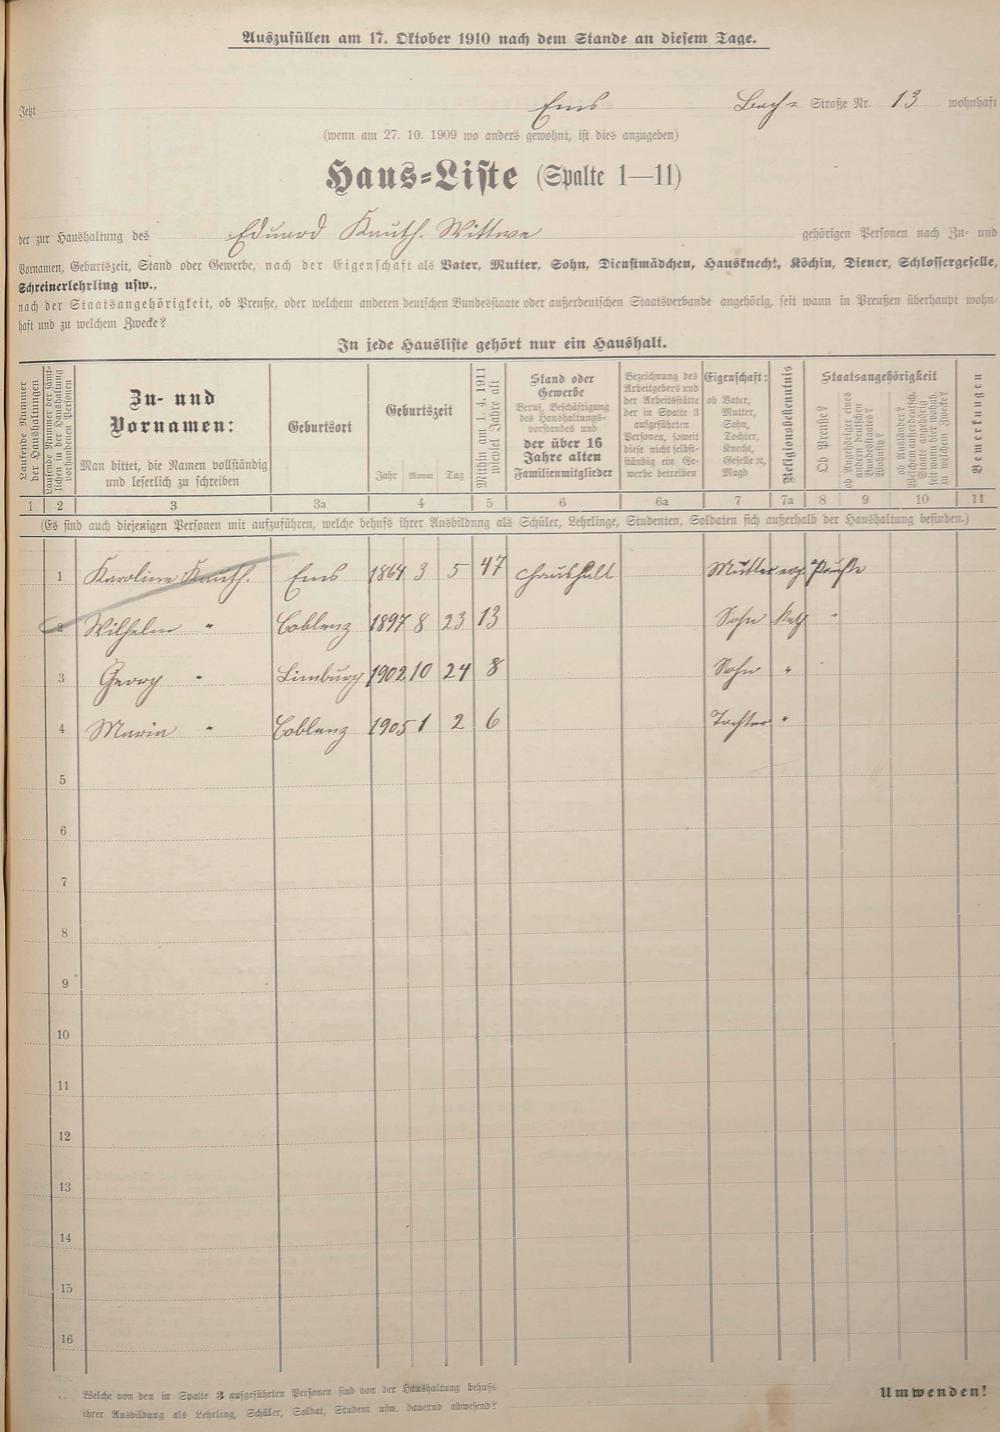 Auszufüllen am 17. Oktober 1910 nach dem Stande an diesem Tage.
Jetzt Ems Bach= Straße Nr. 13 wohnhaft
(wenn am 27. 10. 1909 wo anders gewohnt, ist dies anzugeben)
Haus=Liste (Spalte 1—11)
der zur Haushaltung des Eduard Kauth. Wittwe gehörigen Personen nach Zu- und
Vornamen, Geburtszeit, Stand oder Gewerbe, nach der Eigenschaft als Vater, Mutter, Sohn, Dienstmädchen, Hausknecht, Köchin, Diener, Schlossergeselle,
Schreinerlehrling usw.,
nach der Staatsangehörigkeit, ob Preuße, oder welchem anderen deutschen Bundesstaate oder außerdeutschen Staatsverbande angehörig, seit wann in Preußen überhaupt wohn-
haft und zu welchem Zwecke?
In jede Hausliste gehört nur ein Haushalt.
Laufende Nummer
der Haushaltungen
Laufende Nummer der sämt-
lichen in der Haushaltung
vorhandenen Personen
Zu- und
Vornamen:
Man bittet, die Namen vollständig
und leserlich zu schreiben
Geburtsort
Geburtszeit
Jahr Monat Tag
Mithin am 1. 4. 1911
wieviel Jahre alt
Stand oder
Gewerbe
Beruf, Beschäftigung
des Haushaltungs-
vorstandes und
der über 16
Jahre alten
Familienmitglieder
Bezeichnung des
Arbeitgebers und
der Arbeitsstätte
der in Spalte 3
aufgeführten
Personen, soweit
diese nicht selbst-
ständig ein Ge-
werbe betreiben
Eigenschaft:
ob Vater,
Mutter,
Sohn,
Tochter,
Knecht,
Geselle ꝛc,
Magd
Religionsbekenntnis
Staatsangehörigkeit
Ob Preuße?
ob Angehöriger eines
andern deutschen
Bundesstaates?
Wohnsitz?
ob Ausländer?
Welchem außerdeutsch.
Staate angehörig
seit wann hier wohnh.
zu welchem Zwecke?
Bemerkungen
1 2 3 3a 4 5 6 6a 7 7a 8 9 10 11
(Es sind auch diejenigen Personen mit aufzuführen, welche behufs ihrer Ausbildung als Schüler, Lehrlinge, Studenten, Soldaten sich außerhalb der Haushaltung befinden.)
1 Karoline Kauth. Ems 1864 3 5 47 Haushalt Mutter evg. Preuße
2 Wilhelm " Coblenz 1897 8 23 13 Sohn Kath "
3 Georg " Limburg 1902 10 24 8 Sohn "
4 Maria " Coblenz 1905 1 2 6 Tochter "
5
6
7
8
9
10
11
12
13
14
15
16
Welche von den in Spalte 3 aufgeführten Personen sind von der Haushaltung behufs
ihrer Ausbildung als Lehrling, Schüler, Soldat, Student usw. dauernd abwesend?
Umwenden!